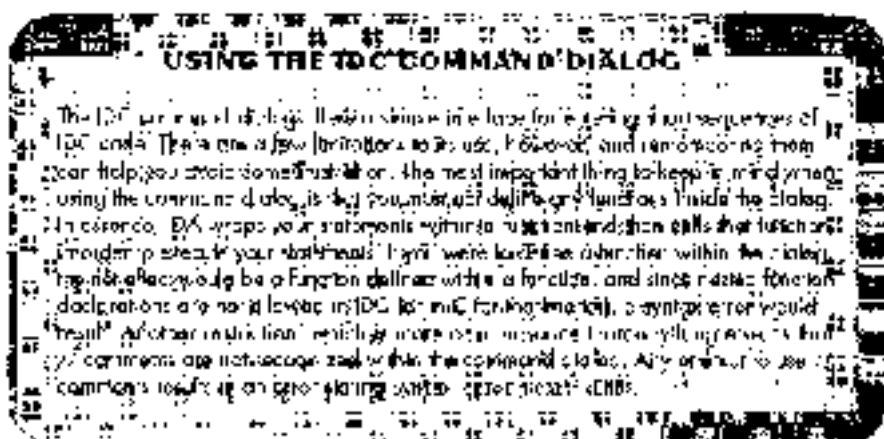 USING THE IDC COMMAND DIALOG
The IDC command dialog offers a simple interface for entering short sequences of
IDC code. There are a few limitations to its use, however, and remembering them
can help you avoid some frustration. The most important thing to keep in mind when
using the command dialog is that you must not define any functions inside the dialog.
In essence, IDA wraps your statements within a function and then calls that function
in order to execute your statements. If you were to define a function within the dialog,
the net effect would be a function defined within a function, and since nested function
declarations are not allowed in IDC (or in C for that matter), a syntax error would
result. Another restriction, which is more
// comments are not recognized within the command dialog. Any attempt to use
comments results in an error stating syntax error near: &lt;END&gt;.